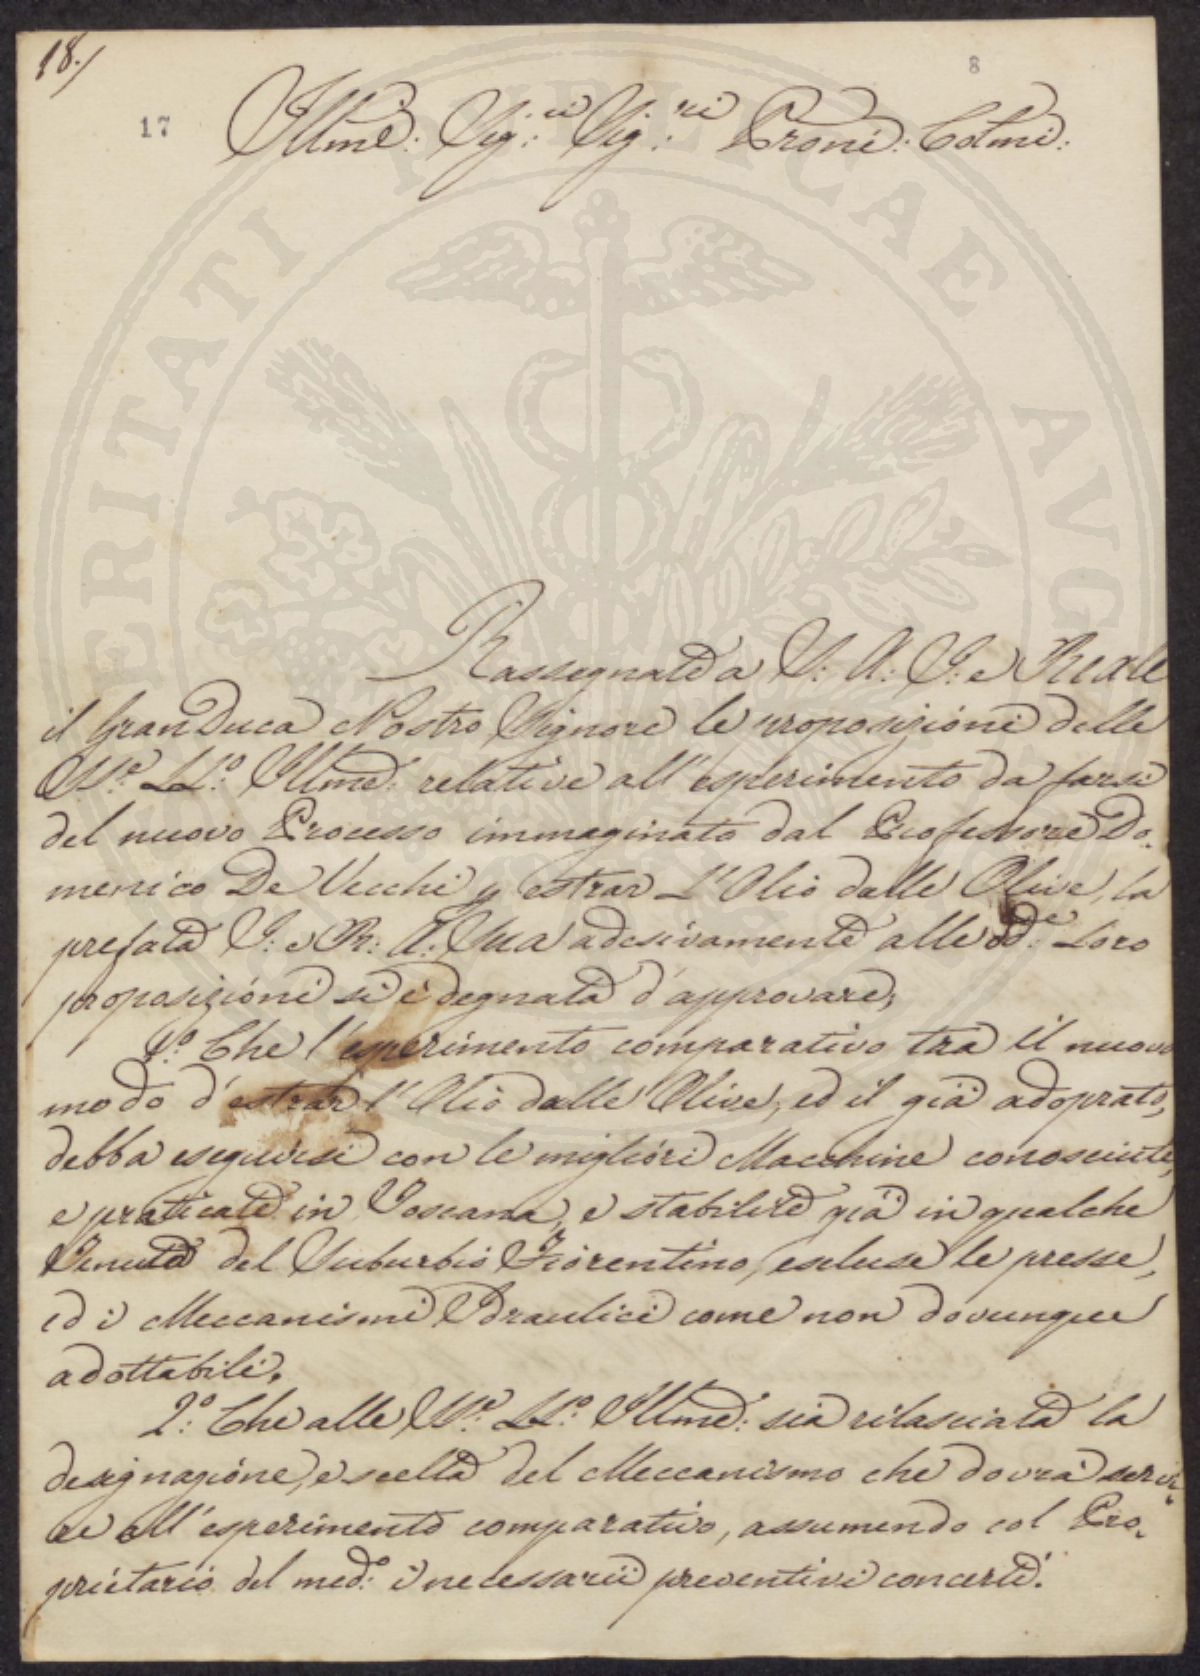 18./
8
17
Illmi: Sig:ri Sig:ri Proni: Colmi:
Rassegnate a S: A: I: e Reale
il Gran Duca Nostro Signore le proposizioni delle
SS.e LL.o Illme: relative all'esperimento da farsi
del nuovo Processo immaginato dal Professore Do-
menico De Vecchi p estrar l'Olio dalle Olive, la
prefata I: e R: A: Sua adesivamente alle dd:e Loro
proposizioni si è degnata d'approvare,
1.o Che l'esperimento comparativo tra il nuovo
modo d'estrar l'Olio dalle Olive, ed il già adoprato,
debba eseguirsi con le migliori Macchine conosciute,
e praticate in Toscana, e stabilite già in qualche
Tenuta del Suburbio Fiorentino, escluse le presse,
ed i Meccanismi Idraulici come non dovunque
adottabili.
2.o Che alle SS.e LL.o Illme: sia rilasciata la
designazione, e scelta del Meccanismo che dovrà servi-
re all'esperimento comparativo, assumendo col Pro-
prietario del med:o i necessarii preventivi concerti.
VERITATI FELICITATI PUBLICAE AVG